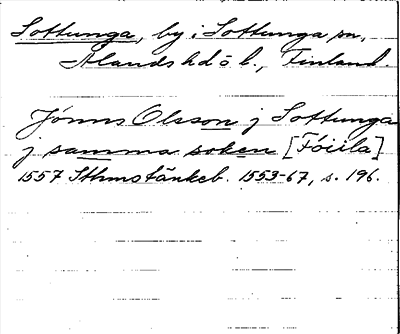 Sottunga, by i Sottunga sn,
Ålands hd o l., Finland.
Jönns Olsson j Sottunga
j samma soken [Föiila]
1557 Sthms tänkeb. 1553-67, s. 196.